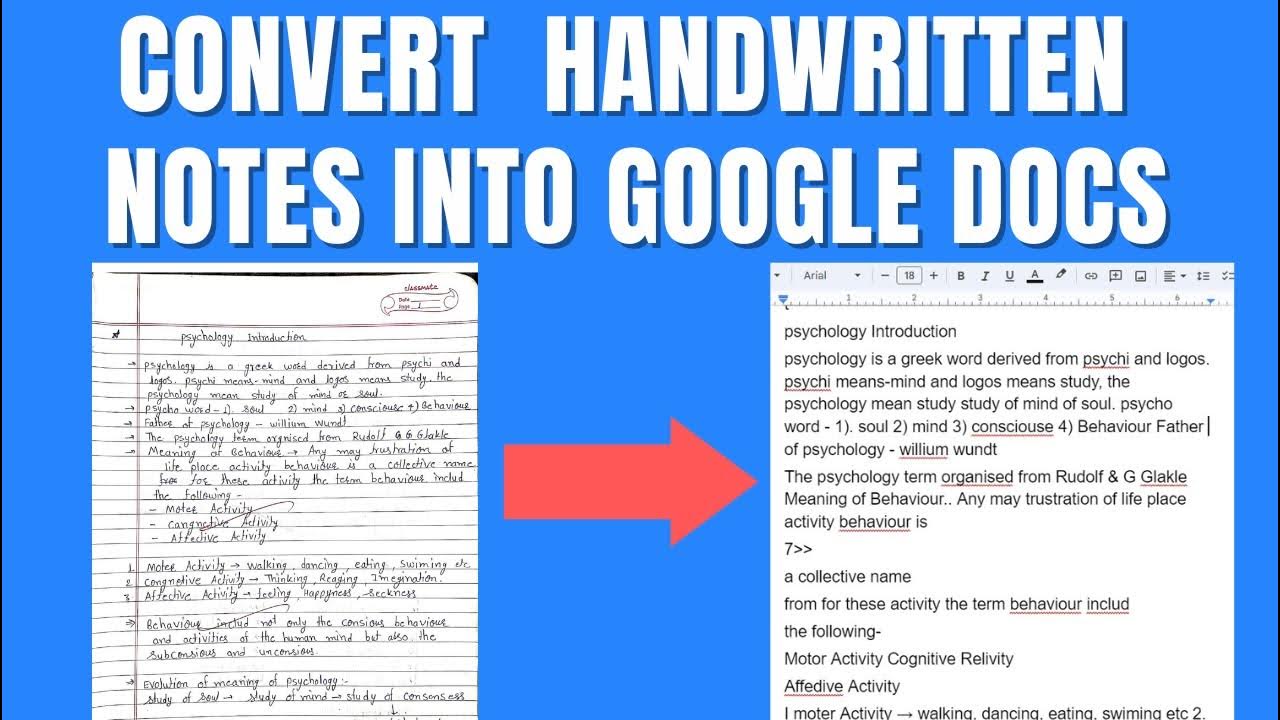 CONVERT HANDWRITTEN
NOTES INTO GOOGLE DOCS
classmate
Date
Page 1
psychology Introduction
→ psychology is a greek word derived from psychi and
logos. psychi means-mind and logos means study. the
psychology mean study of mind of soul.
→ psycho word - 1). soul 2) mind 3) consciouse 4) Behaviour
→ Father of psychology - willium wundt
→ The psychology term orgnised from Rudolf G Glakle
→ Meaning of Behaviour → Any may trustration of
life place activity behaviour is a collective name
for these activity the term behaviour includ
the following -
- Moter Activity
- Congnetive Activity
- Affective Activity
1. Moter Activity → walking, dancing, eating, swiming etc
2. Congnetive Activity → Thinking, Reaging, Imegination.
3. Affective Activity → feeling, Happyness, seckness
⇒ Behaviour includ not only the consious behaviour
and activities of the human mind but also the
subconsious and unconsious.
→ Evolution of meaning of psychology :-
study of soul → study of mind → study of consonsess
Arial
18
B I U A
1 2 3 4 5 6
psychology Introduction
psychology is a greek word derived from psychi and logos.
psychi means-mind and logos means study, the
psychology mean study study of mind of soul. psycho
word - 1). soul 2) mind 3) consciouse 4) Behaviour Father
of psychology - willium wundt
The psychology term organised from Rudolf & G Glakle
Meaning of Behaviour.. Any may trustration of life place
activity behaviour is
7>>
a collective name
from for these activity the term behaviour includ
the following-
Motor Activity Cognitive Relivity
Affedive Activity
I moter Activity → walking, dancing, eating, swiming etc 2.